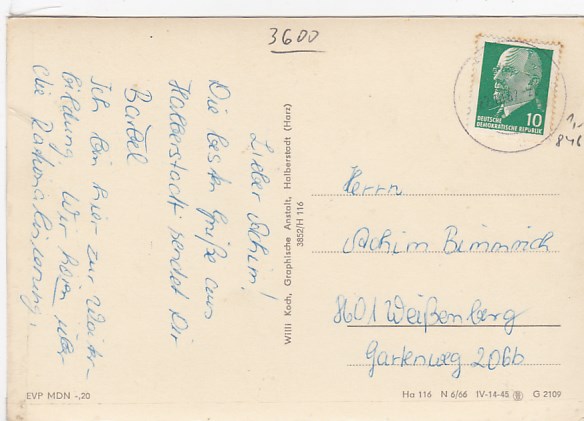 3600
DEUTSCHE
DEMOKRATISCHE REPUBLIK
10
1,-
846
Lieber Achim!
Die besten Grüße aus
Halberstadt sendet Dir
Bärbel
Ich bin hier zur Weiter-
bildung. Wir hören über
die Rationalisierung.
Willi Koch, Graphische Anstalt, Halberstadt (Harz)
3852/H 116
Herrn
Achim Bimmrich
8601 Weißenberg
Gartenweg 206b
EVP MDN -,20
Ha 116 N 6/66 IV-14-45 G 2109